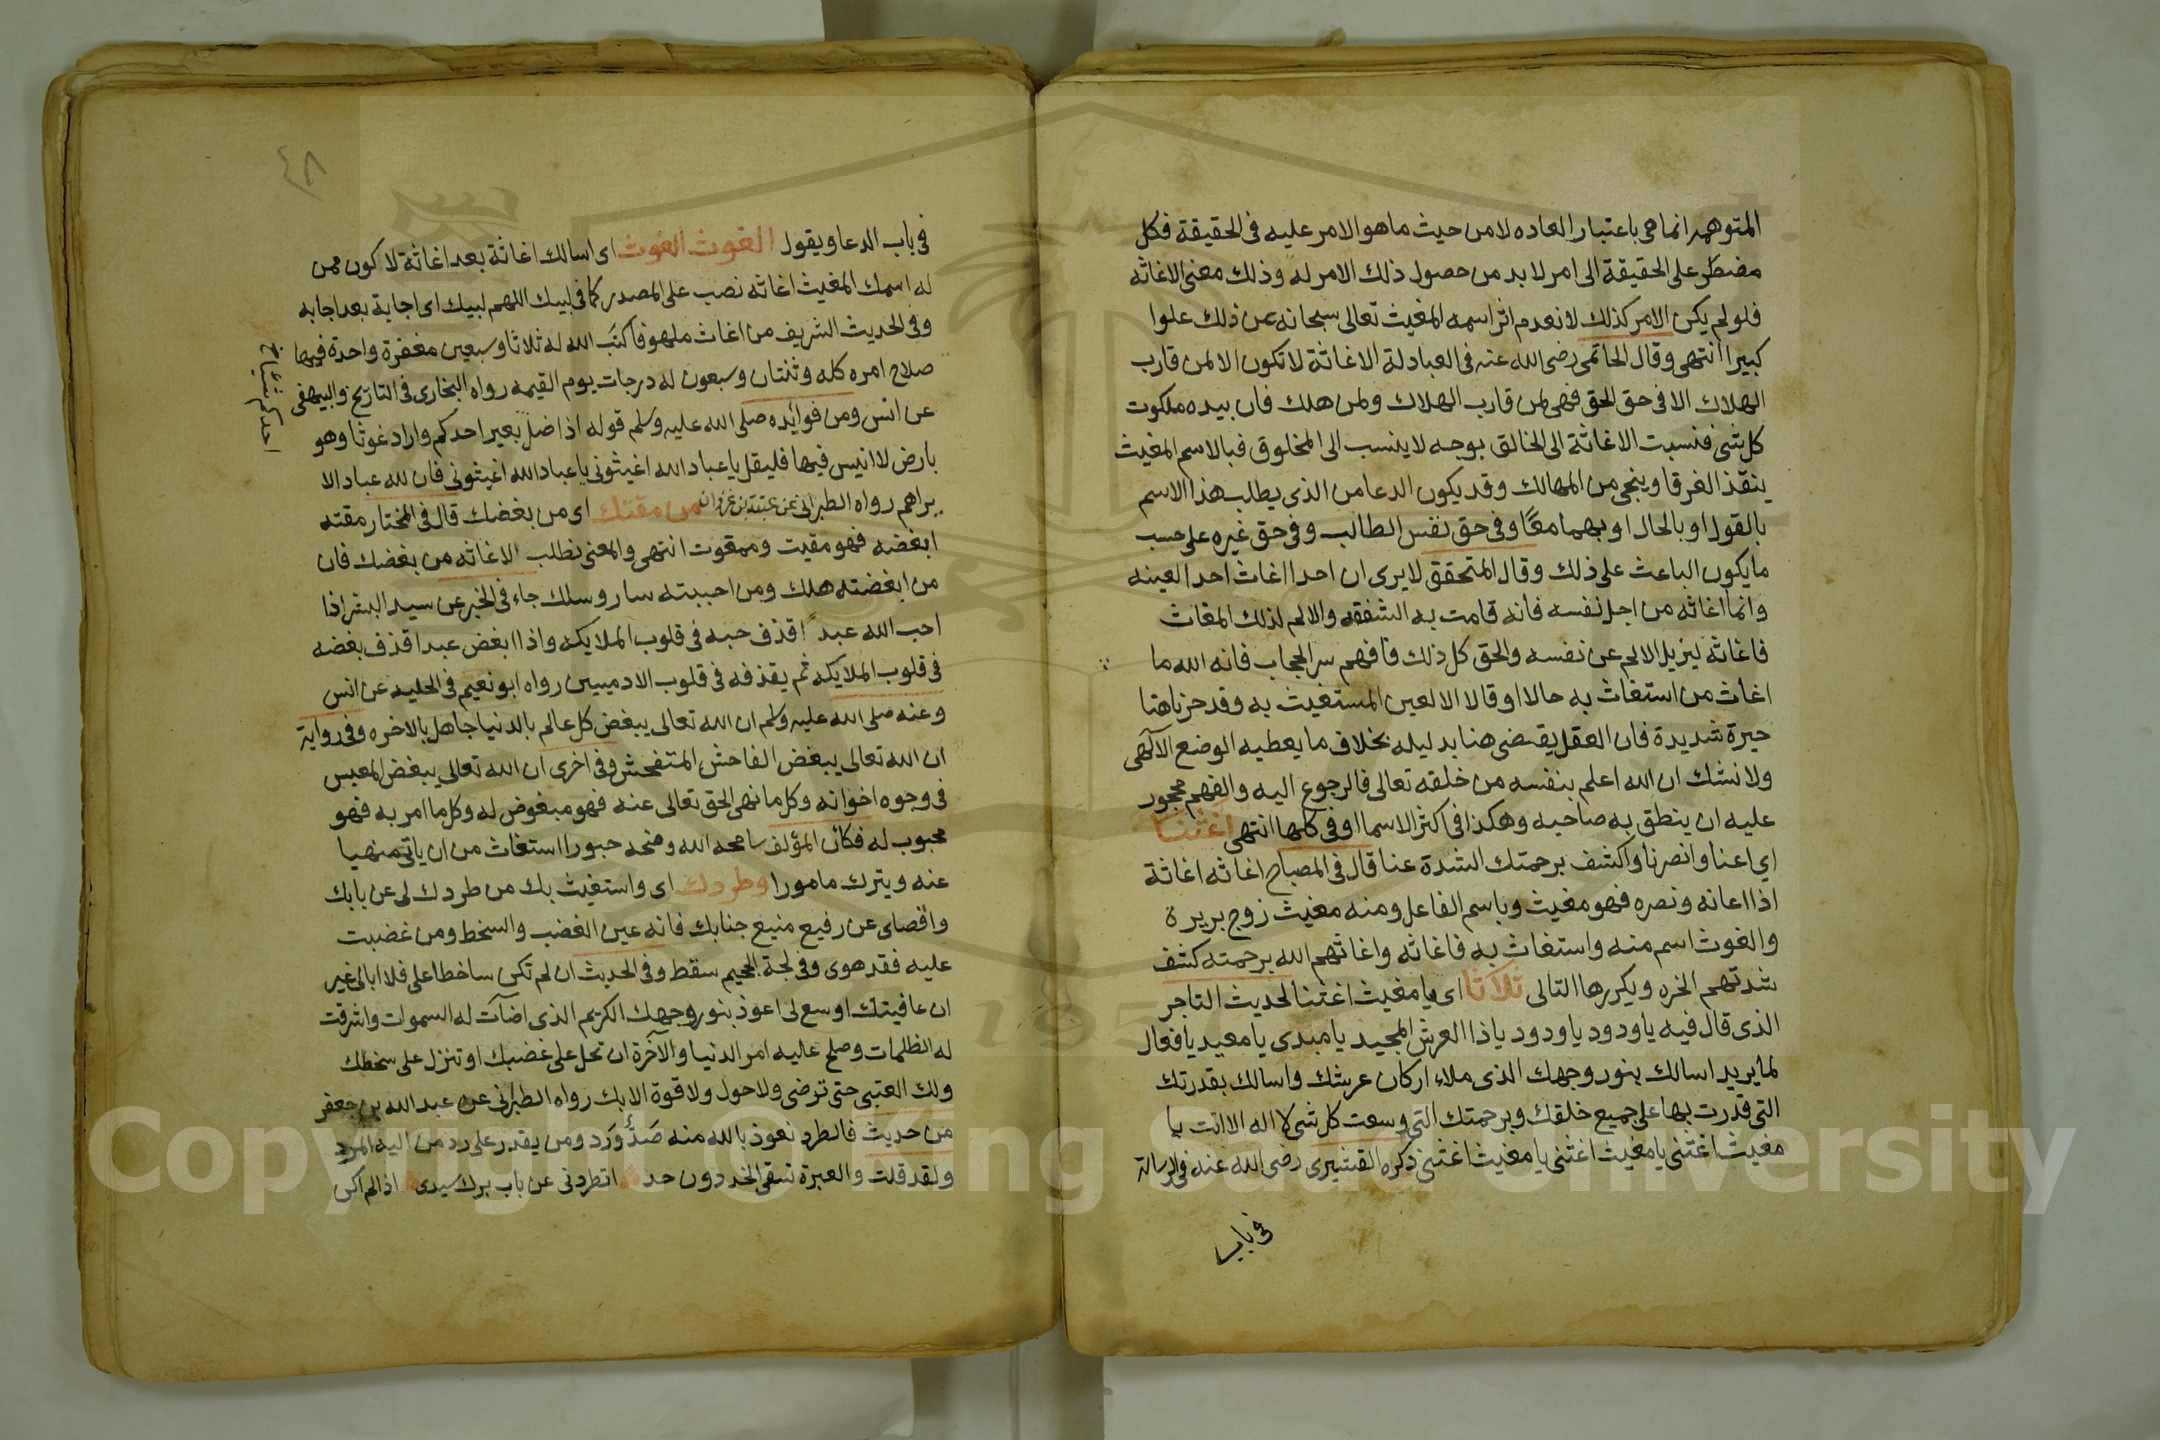 المتوهمه انما هى باعتبار العاده لا من حيث ما هو الامر عليه فى الحقيقة فكل
مضطر على الحقيقة الى امر لا بد من حصول ذلك الامر له وذلك معنى الاغاثه
فلو لم يكن الامر كذلك لانعدم اثر اسمه المغيث تعالى سبحانه عن ذلك علوا
كبيرا انتهى وقال الحاتمى رضى الله عنه فى العبادلة الاغاثة لا تكون الا لمن قارب
الهلاك الا فى حق الحق فهى لمن قارب الهلاك ولمن هلك فان بيده ملكوت
كل شئ فنسبت الاغاثة الى الخالق بوجه لا ينسب الى المخلوق فبالاسم المغيث
ينقذ الغرقا وينجى من المهالك وقد يكون الدعا من الذى يطلب هذا الاسم
بالقول او بالحال او بهما معًا وفى حق نفس الطالب وفى حق غيره على حسب
ما يكون الباعث على ذلك وقال المتحقق لا يرى ان احدا اغاث احدا لعينه
وانما اغاثه من اجل نفسه فانه قامت به الشفقه والالم لذلك المغاث
فاغاثه ليزيل الالم عن نفسه والحق كل ذلك فافهم سر الحجاب فانه الله ما
اغاث من استغاث به حالا او قالا الا لعين المستغيث به وقد حزناهنا
حيرة شديدة فان العقل يقضى هنا بدليله بخلاف ما يعطيه الوضع الآلهى
ولا نشك ان الله اعلم بنفسه من خلقه تعالى فالرجوع اليه والفهم محجور
عليه ان ينطق به صاحبه وهكذا فى اكثر الاسما او فى كلها انتهى اغثنا
اى اعنا وانصرنا واكشف برحمتك الشدة عنا قال فى المصباح اغاثه اغاثة
اذا اعانه ونصره فهو مغيث وباسم الفاعل ومنه مغيث زوج بريرة
والغوث اسم منه واستغاث به فاغاثه واغاثهم الله برحمته كشف
شدتهم الخره ويكررها التالى ثلاثا اى يا مغيث اغثنا لحديث التاجر
الذى قال فيه يا ودود يا ودود يا ذا العرش المجيد يا مبدى يا معيد يا فعال
لما يريد اسالك بنور وجهك الذى ملاء اركان عرشك واسالك بقدرتك
التى قدرت بها على جميع خلقك وبرحمتك التى وسعت كل شى لا اله الا انت يا
مغيث اغثنى يا مغيث اغثنى يا مغيث اغثنى ذكره القشيرى رضى الله عنه فى الرسالة
فى باب
٤٨
فى باب الدعا ويقول الغوث الغوث اى اسالك اغاثة بعد اغاثة لاكون ممن
له اسمك المغيث اغاثه نصب على المصدر كما فى لبيك اللهم لبيك اى اجابة بعد اجابه
وفى الحديث الشريف من اغاث ملهوفا كتب الله له ثلاثا وسبعين مغفرة واحدة فيها
صلاح امره كله وثنتان وسبعون له درجات يوم القيمه رواه البخارى فى التاريخ والبيهقى
عن انس ومن فوائده صلى الله عليه وسلم قوله اذا ضل بعير احدكم واراد غوثا وهو
بارض لا انيس فيها فليقل يا عباد الله اغيثونى يا عباد الله اغيثونى فان لله عبادا لا
يراهم رواه الطبرانى عن عتبة بن غزوان من مقتك اى من بغضك قال فى المختار مقته
ابغضه فهو مقيت وممقوت انتهى والمعنى نطلب الاغاثه من بغضك فان
من ابغضته هلك ومن احببته سار وسلك جاء فى الخبر عن سيد البشر اذا
احب الله عبدًا قذف حبه فى قلوب الملايكه واذا ابغض عبدا قذف بغضه
فى قلوب الملايكه ثم يقذفه فى قلوب الادميين رواه ابو نعيم فى الحليه عن انس
وعنه صلى الله عليه وسلم ان الله تعالى يبغض كل عالم بالدنيا جاهل بالاخره وفى رواية
ان الله تعالى يبغض الفاحش المتفحش وفى اخرى ان الله تعالى يبغض المعبس
فى وجوه اخوانه وكل ما نهى الحق تعالى عنه فهو مبغوض له وكل ما امر به فهو
محبوب له فكان المؤلف سامحه الله ومنحه حبورا استغاث من ان ياتى منهيا
عنه ويترك مامورا وطردك اى واستغيث بك من طردك لى عن بابك
واقصاى عن رفيع منيع جنابك فانه عين الغضب والسخط ومن غضبت
عليه فقد هوى وفى لجة الجحيم سقط وفى الحديث ان لم تكن ساخطا على فلا ابالى غير
ان عافيتك اوسع لى اعوذ بنور وجهك الكريم الذى اضآت له السموات واشرقت
له الظلمات وصلح عليه امر الدنيا والآخرة ان تحل على غضبك او تنزل على سخطك
ولك العتبى حتى ترضى ولا حول ولا قوة الا بك رواه الطبرانى عن عبد الله بن جعفر
من حديث فالطرد نعوذ بالله منه صَدٌّ وَرَد ومن يقدر على رد من اليه المرد
ولقد قلت والعبرة تسقى الخد دون حد اتطردنى عن باب برك سيدى اذا لم اكن
Copyright © King Saud University
1957